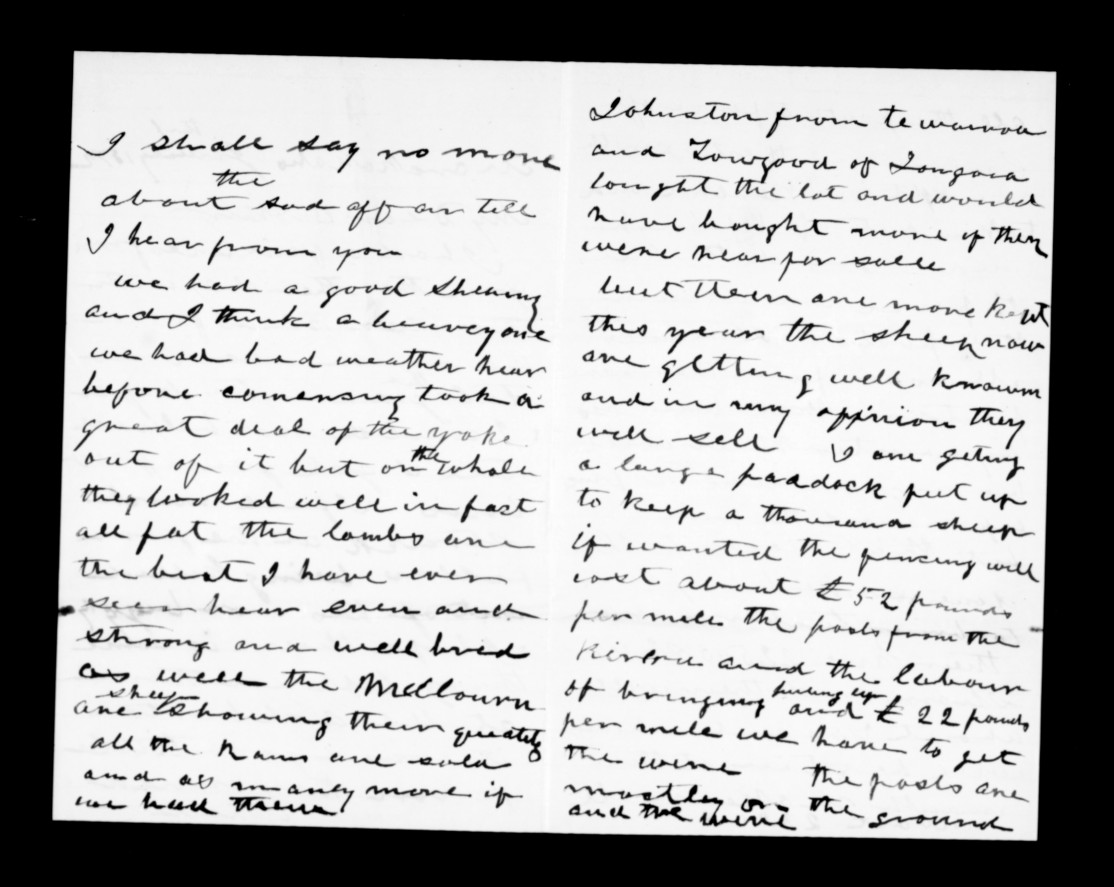 I shall say no more
about the sad affair till
I hear from you
we had a good shearing
and I think a heavey one
we had bad weather hear
before comensing took a
great deal of the yoke
out of it but on the whole
they looked well in fact
all fat the lambs are
the best I have ever
seen hear even and
strong and well bred
as well the Mellourn
sheep are showing their queality
all the Rams are sold
and as maney more if
we had them
Johnston from te wairoa
and Towgood of Tongoia
bought the lot and would
have bought more if they
were hear for salle
but their are more kept
this year the sheep now
are getting well knowun
and in my oppinion they
will sell I am geting
a large paadock put up
to keep a thousand sheep
if wanted the fencing will
cost about £52 pounds
per mile the posts from the
and the labour
of bringing puting up and £22 pounds
per mile we have to get
the wire the posts are
mostley on the ground
and the wire